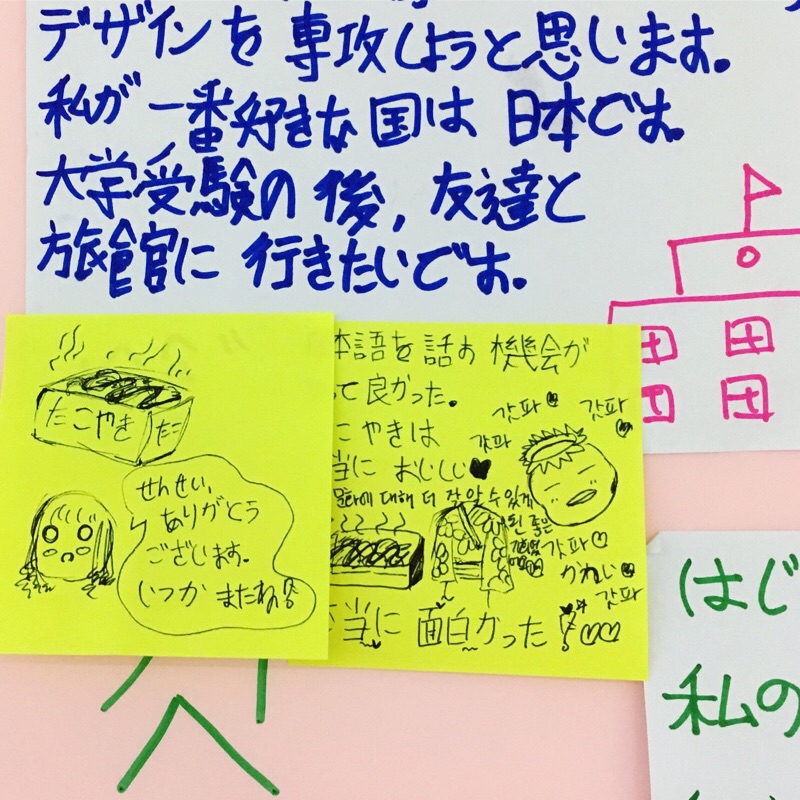 デザインを専攻しようと思います。
私が一番好きな国は日本です。
大学受験の後，友達と
旅館に行きたいです。
たこやき たこ
せんせい，
ありがとう
ございます。
いつか またね
本語を話す機会が
って良かった。
こやきは
当においしい♥
갓파 갓파
갓파
문화에 대해 더 잘 알 수 있게
된 좋은
갓파♡
かわいい
갓파
本当に面白かった!♡♡
はじ
私の